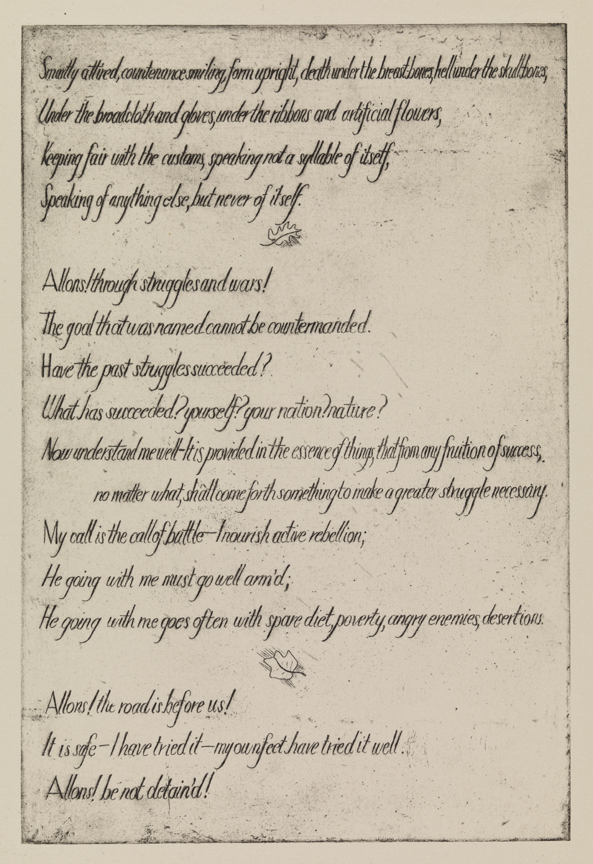 Smartly attired, countenance smiling, form upright, death under the breast-bones, hell under the skull-bones,
Under the broadcloth and gloves, under the ribbons and artificial flowers,
Keeping fair with the customs, speaking not a syllable of itself,
Speaking of anything else, but never of itself.
Allons! through struggles and wars!
The goal that was named cannot be countermanded.
Have the past struggles succeeded?
What has succeeded? yourself? your nation? nature?
Now understand me well—It is provided in the essence of things, that from any fruition of success,
no matter what, shall come forth something to make a greater struggle necessary.
My call is the call of battle—I nourish active rebellion;
He going with me must go well arm'd;
He going with me goes often with spare diet, poverty, angry enemies, desertions.
Allons! the road is before us!
It is safe—I have tried it—my own feet have tried it well.
Allons! be not detain'd!